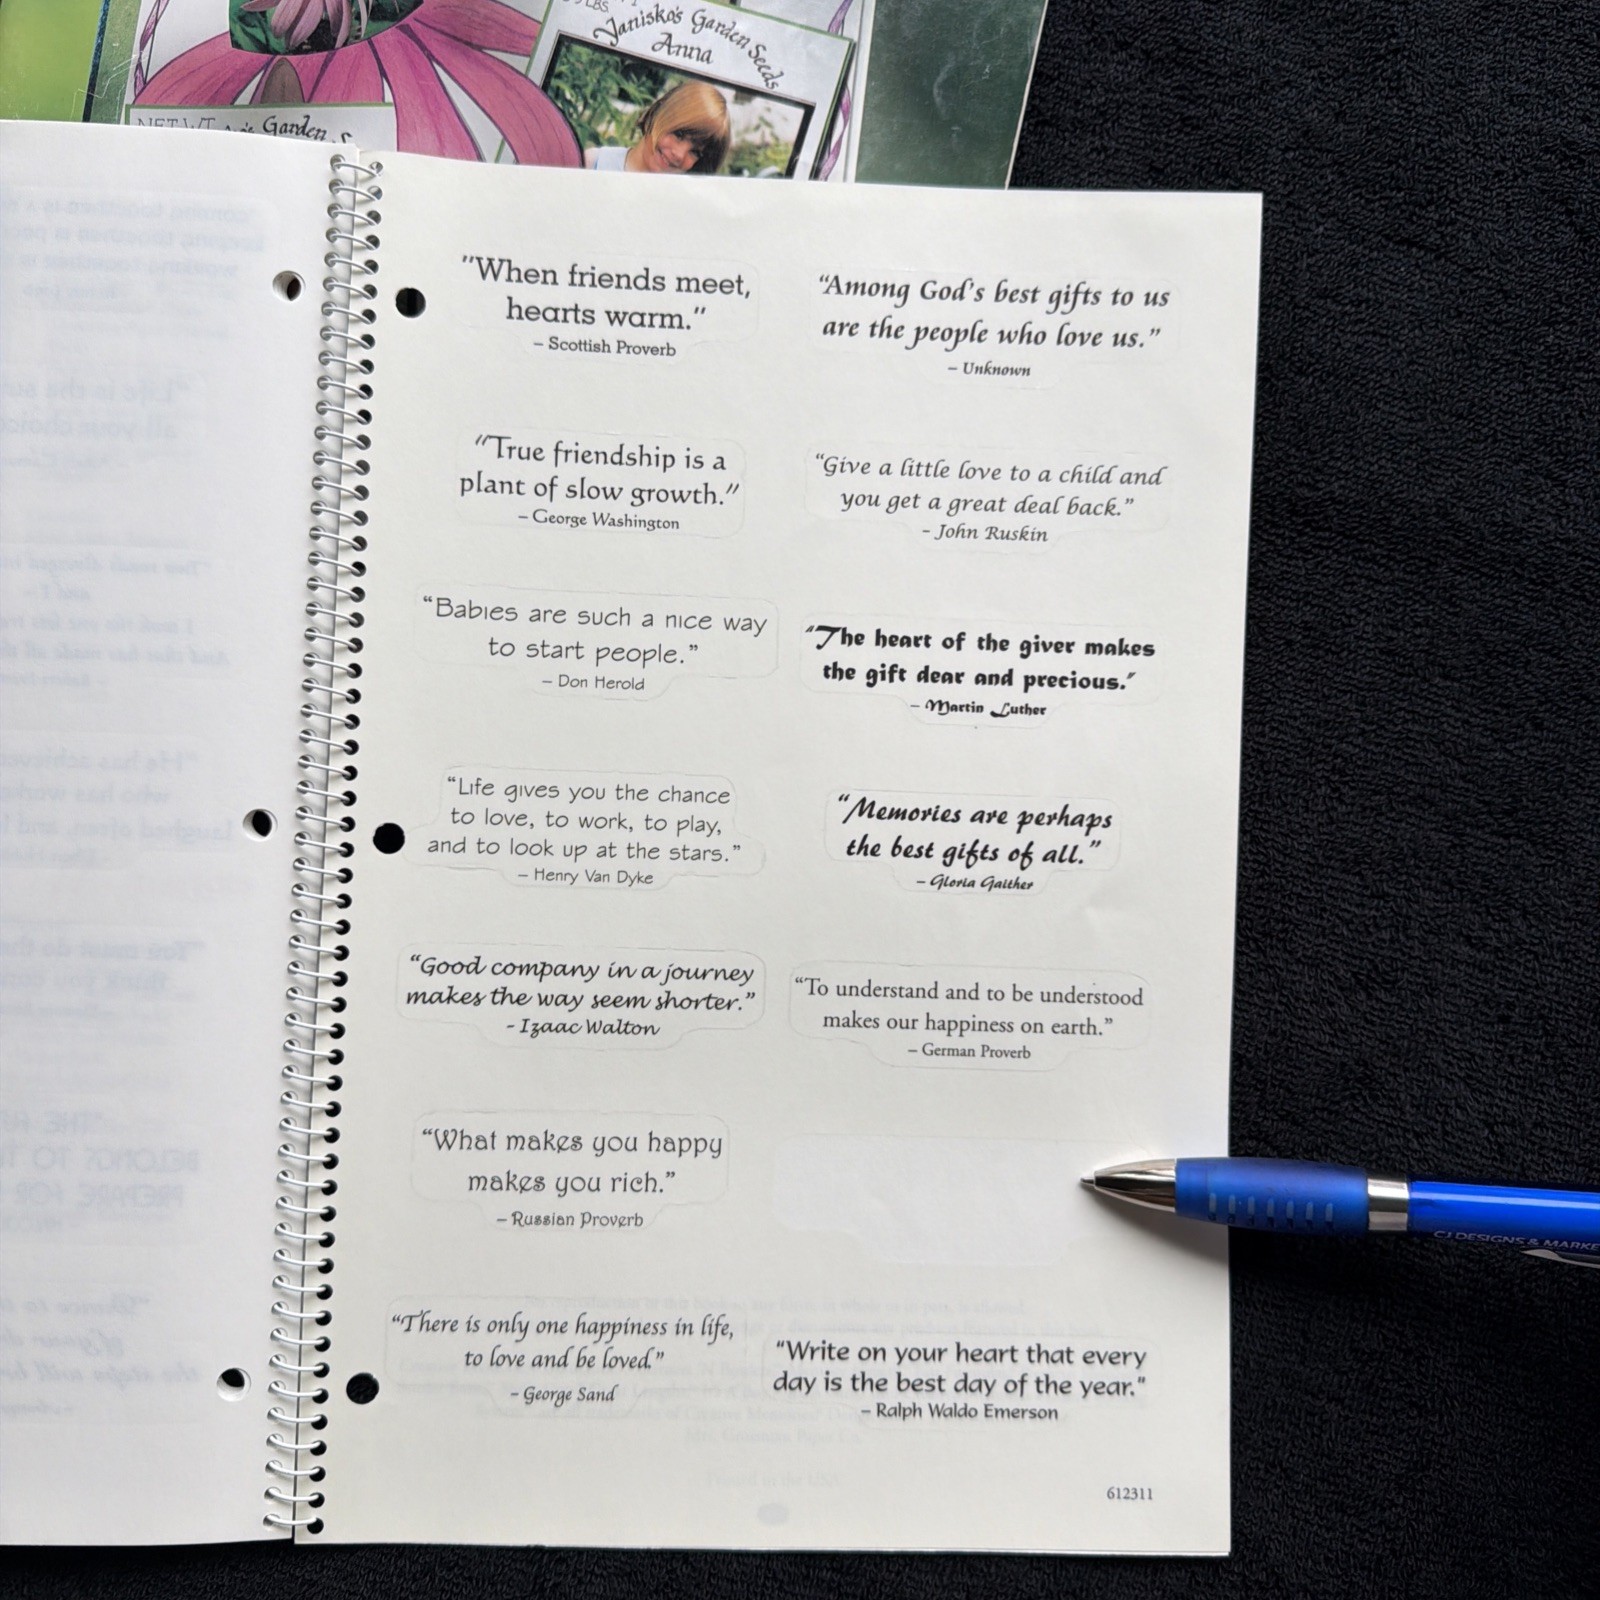 Janisko's Garden Seeds
Anna
NET WT
Garden
"When friends meet,
hearts warm."
– Scottish Proverb
"Among God's best gifts to us
are the people who love us."
– Unknown
"True friendship is a
plant of slow growth."
– George Washington
"Give a little love to a child and
you get a great deal back."
– John Ruskin
"Babies are such a nice way
to start people."
– Don Herold
"The heart of the giver makes
the gift dear and precious."
– Martin Luther
"Life gives you the chance
to love, to work, to play,
and to look up at the stars."
– Henry Van Dyke
"Memories are perhaps
the best gifts of all."
– Gloria Gaither
"Good company in a journey
makes the way seem shorter."
- Izaac Walton
"To understand and to be understood
makes our happiness on earth."
– German Proverb
"What makes you happy
makes you rich."
– Russian Proverb
"There is only one happiness in life,
to love and be loved."
– George Sand
"Write on your heart that every
day is the best day of the year."
– Ralph Waldo Emerson
612311
CJ DESIGNS & MARKE